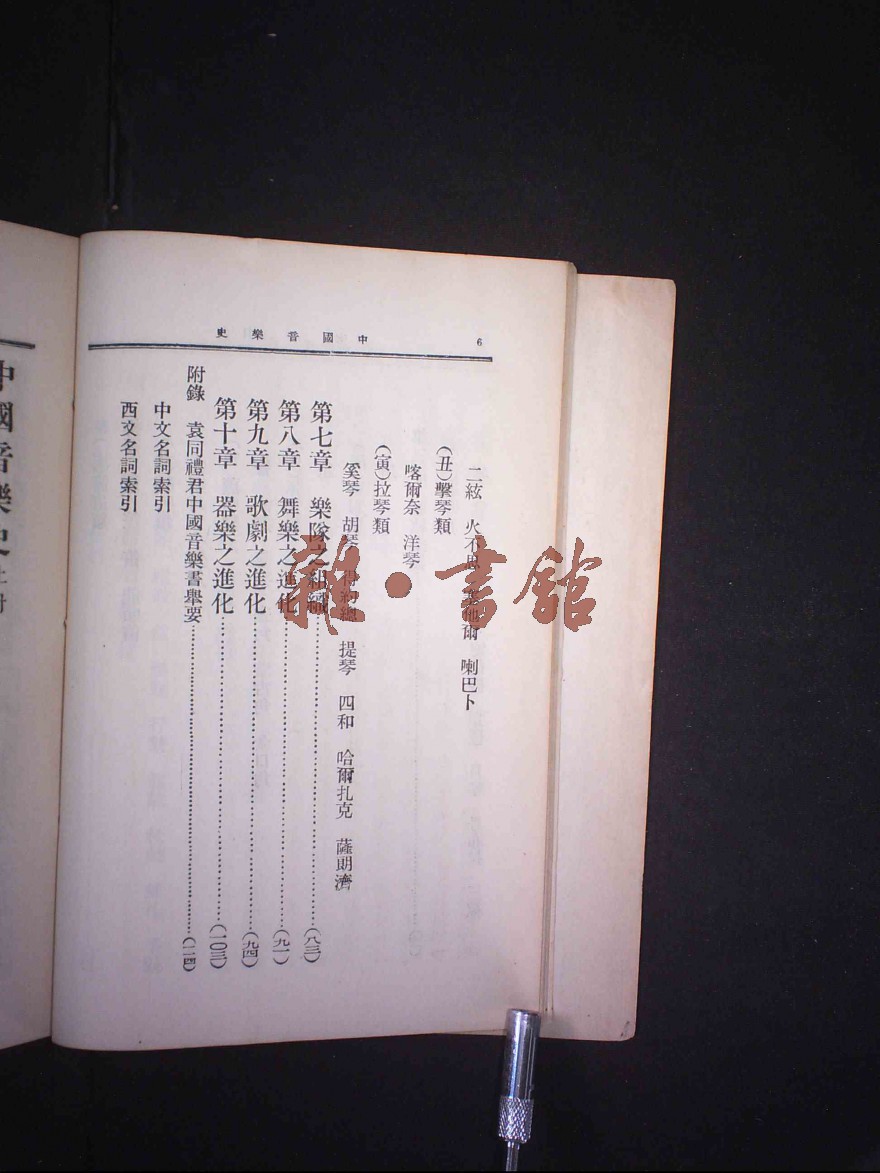 中國音樂史 6
二絃 火不思 塞他爾 喇巴卜
(丑)擊琴類
喀爾奈 洋琴
(寅)拉琴類
奚琴 胡琴 得約總 提琴 四和 哈爾扎克 薩朗濟
第七章 樂隊之組織……(八三)
第八章 舞樂之進化……(九一)
第九章 歌劇之進化……(九四)
第十章 器樂之進化……(一〇三)
附錄 袁同禮君中國音樂書舉要……(一一四)
中文名詞索引
西文名詞索引
中國音樂史
雜·書館